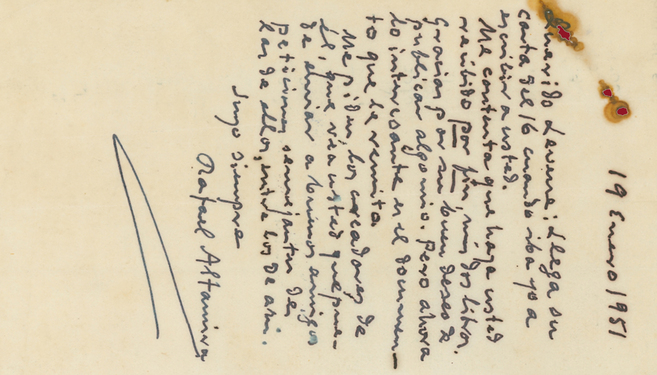 19 Enero 1951
Querido Levene: Llega su
carta del 16 cuando iba yo a
escribir a usted.
Me contenta que haya usted
recibido por fin, mis dos libros.
Gracias por su buen deseo de
publicar algo mio. Pero ahora
lo interesante es el documen-
to que le remito.
Me piden los creadores de
él, que vea usted que pue-
de enviar a buenos amigos
peticiones semejantes de
las de ellos, entre los de ahi.
Suyo siempre
Rafael Altamira